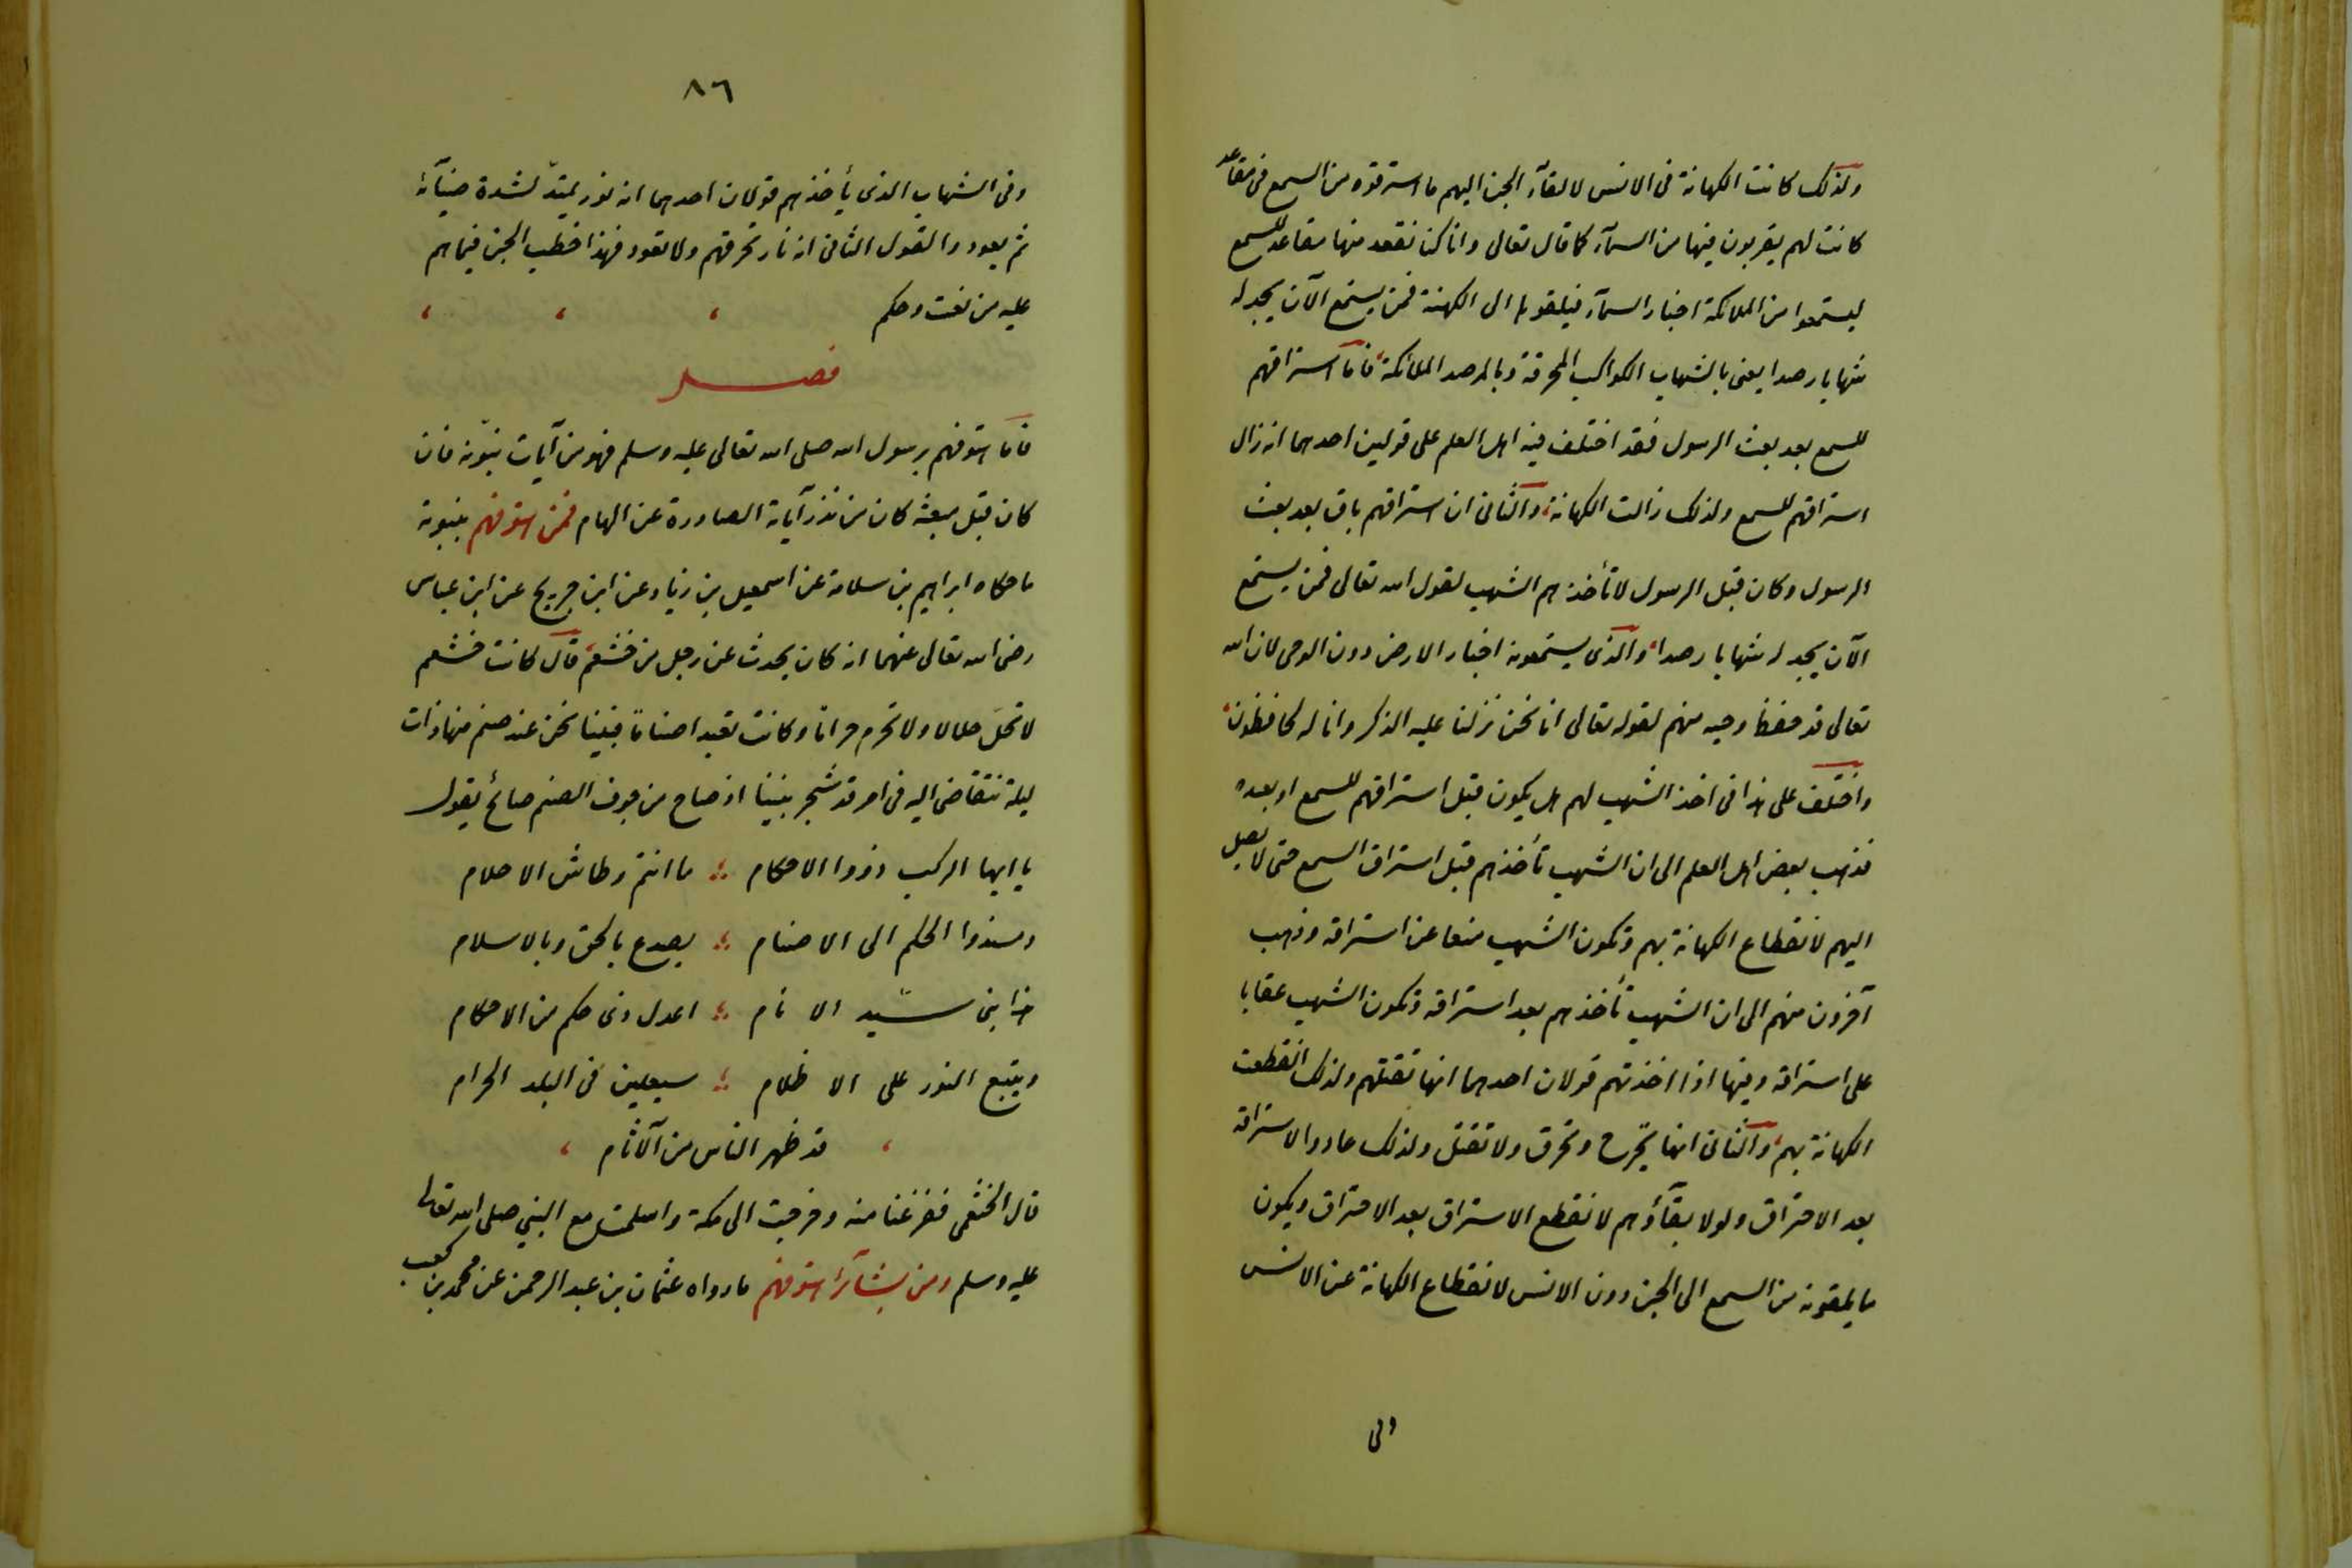 ولذلك كانت الكهانة فى الانس لالقآء الجن اليهم ما استرقوه من السمع فى مقاعد
كانت لهم يقربون فيها من السمآء كما قال تعالى وانا كنا نقعد منها مقاعد للسمع
ليستمعوا من الملائكة اخبار السمآء فيلقوها الى الكهنة فمن يستمع الآن يجد له
شهابا رصدا يعنى بالشهاب الكواكب المحرقة وبالرصد الملائكة فاما استراقهم
للسمع بعد بعث الرسول فقد اختلف فيه اهل العلم على قولين احدهما انه زال
استراقهم للسمع ولذلك زالت الكهانة والثانى ان استراقهم باق بعد بعث
الرسول وكان قبل الرسول لا تأخذهم الشهب لقول الله تعالى فمن يستمع
الآن يجد له شهابا رصدا والذى يستمعونه اخبار الارض دون الوحى لان الله
تعالى قد حفظ وحيه منهم لقوله تعالى انا نحن نزلنا عليه الذكر وانا له لحافظون
واختلف على هذا فى اخذ الشهب لهم هل يكون قبل استراقهم للسمع او بعده
فذهب بعض اهل العلم الى ان الشهب تأخذهم قبل استراق السمع حتى لا يصل
اليهم لانقطاع الكهانة بهم وتكون الشهب منعا عن استراقه وذهب
آخرون منهم الى ان الشهب تأخذهم بعد استراقه وتكون الشهب عقابا
على استراقه وفيها اذا اخذتهم قولان احدهما انها تقتلهم ولذلك انقطعت
الكهانة بهم والثانى انها تجرح وتحرق ولا تقتل ولذلك عادوا لاستراقه
بعد الاحتراق ولولا بقآؤهم لانقطع الاستراق بعد الاحتراق ويكون
ما يلقونه من السمع الى الجن دون الانس لانقطاع الكهانة عن الانس
وفى
٨٦
وفى الشهاب الذى يأخذهم قولان احدهما انه نور يمتد لشدة ضيآئه
ثم يعود والقول الثانى انه نار تحرقهم ولا تعود فهذا خطب الجن فيما هم
عليه من نعت وحكم
فصل
فاما هتوفهم برسول الله صلى الله تعالى عليه وسلم فهو من آيات نبوّته فان
كان قبل مبعثه كان من نذر آياته الصادرة عن الهام فمن هتوفهم بنبوته
ما حكاه ابراهيم بن سلامة عن اسمعيل بن زياد عن ابن جريج عن ابن عباس
رضى الله تعالى عنهما انه كان يحدث عن رجل من خثعم قال كانت خثعم
لا تحلّ حلالا ولا تحرم حراما وكانت تعبد اصناما فبينا نحن عند صنم منها ذات
ليلة نتقاضى اليه فى امر قد شجر بيننا اذ صاح من جوف الصنم صائح يقول
يا ايها الركب ذووا الاحكام ما انتم وطاش الاحلام
ومسندوا الحكم الى الاصنام يصدع بالحق وبالاسلام
هذا نبى سيّد الانام اعدل ذى حكم من الاحكام
ويتبع النور على الاظلام سيعلين فى البلد الحرام
قد ظهر الناس من الآثام
قال الخثعمى ففزعنا منه وخرجت الى مكة واسلمت مع النبى صلى الله تعالى
عليه وسلم ومن بشآئر هتوفهم ما رواه عثمان بن عبد الرحمن عن محمد بن كعب